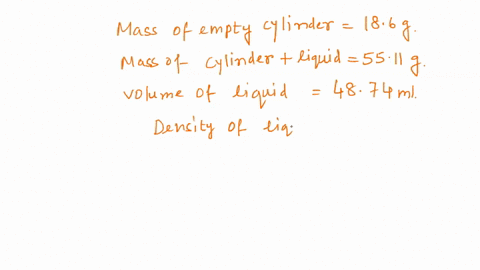 Mass of empty cylinder = 18.6 g.
Mass of cylinder + liquid = 55.11 g.
volume of liquid = 48.74 ml.
Density of liq